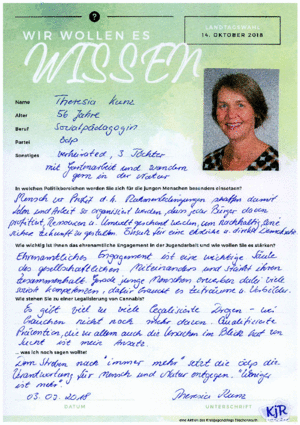 ?
WIR WOLLEN ES
WISSEN
LANDTAGSWAHL
14. OKTOBER 2018
Name Theresia Kunz
Alter 56 Jahre
Beruf Sozialpädagogin
Partei ödp
Sonstiges verheiratet, 3 Töchter
mit Gartenarbeit und wandern
gern in der Natur
In welchen Politikbereichen werden Sie sich für die jungen Menschen besonders einsetzen?
Mensch vor Profit d.h. Rahmenbedingungen schaffen damit
Leben und Arbeit so organisiert werden, dass jeder Bürger davon
profitiert, Ressourcen u. Umwelt geschont werden, um nachhaltig eine
sichere Zukunft zu gestalten. Einsatz für eine ehrliche u. direkte Demokratie
Wie wichtig ist Ihnen das ehrenamtliche Engagement in der Jugendarbeit und wie wollen Sie es stärken?
Ehrenamtliches Engagement ist eine wichtige Säule
des gesellschaftlichen Miteinanders und stärkt ihren
Zusammenhalt. Gerade junge Menschen erwerben dabei viel
soziale Kompetenzen, dafür braucht es Zeiträume u. Vorbilder.
Wie stehen Sie zu einer Legalisierung von Cannabis?
Es gibt viel zu viele legalisierte Drogen - wir
brauchen nicht noch mehr davon. Qualifizierte
Prävention, die vor allem auch die Ursachen im Blick hat von
Sucht ist mein Ansatz.
... was ich noch sagen wollte!
Dem Streben nach "immer mehr" setzt die ödp die
Verantwortung für Mensch und Natur entgegen. "Weniger
ist mehr"
03.09.2018 Theresia Kunz
DATUM UNTERSCHRIFT
KJR
Eine Aktion des Kreisjugendrings